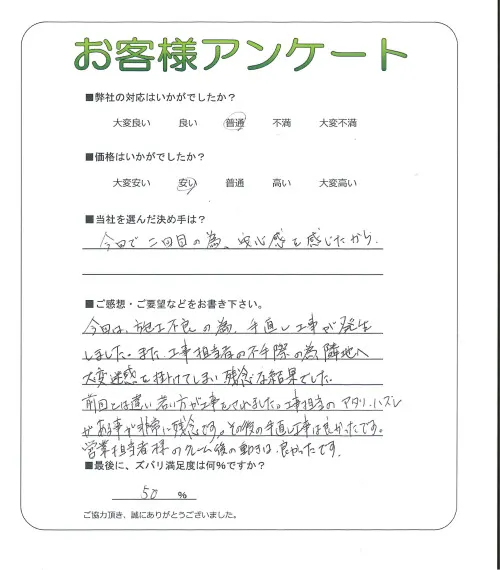 お客様アンケート
■弊社の対応はいかがでしたか？
大変良い 良い 普通 不満 大変不満
■価格はいかがでしたか？
大変安い 安い 普通 高い 大変高い
■当社を選んだ決め手は？
今回で二回目の為、安心感を感じたから.
■ご感想・ご要望などをお書き下さい。
今回は、施工不良の為、手直し工事が発生
しました。また、工事担当者の不手際の為 隣地へ
大変迷惑を掛けてしまい残念な結果でした。
前回とは違い若い方が工事をされました。工事担当のアタリ、ハズレ
がある事が非常に残念です。その後の手直し工事は良かったです。
営業担当者様のクレーム後の動きは、良かったです.
■最後に、ズバリ満足度は何%ですか？
50 %
ご協力頂き、誠にありがとうございました。